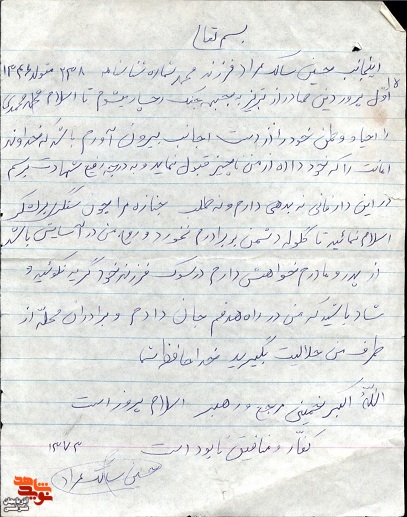 بسم تعالی
اینجانب حسین سالک مراد فرزند محمد شماره شناسنامه ۲۳۸ متولد ۱۳۴۶
اول فروردین ماه از تبریز به جبهه جنگ میشوم تا اسلام محمدی
را احیاء و وطن خود را از دست اجانب بیرون آورم باشد که خداوند
امانت را که خود داده از من بپذیرد قبول نماید و به درجه رفیع شهادت برسم
در این دار فانی نه بدهی دارم و نه طلب جنازه مرا چون سنگر برای لشکر
اسلام نمائید تا گلوله دشمن بر برادرم نخورد و روح من در آسایش باشد
از پدر و مادرم خواهش دارم در سوک فرزند خود گریه نکنید و
شاد باشید که من در راه هدفم جان دادم و برادران محله از
طرف من حلالیت بگیرید خداحافظ شما
الله اکبر خمینی مرجع و رهبر اسلام پیروز است
کفار و منافقین نابود است ۱۳۷۳
حسین سالک مراد
نوید شاهد